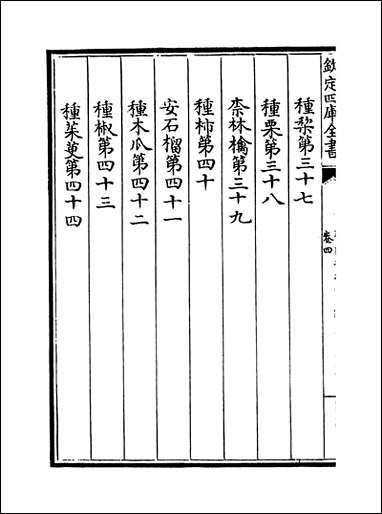 欽定四庫全書
卷四
種梨第三十七
種栗第三十八
柰林檎第三十九
種柿第四十
安石榴第四十一
種木瓜第四十二
種椒第四十三
種茱萸第四十四